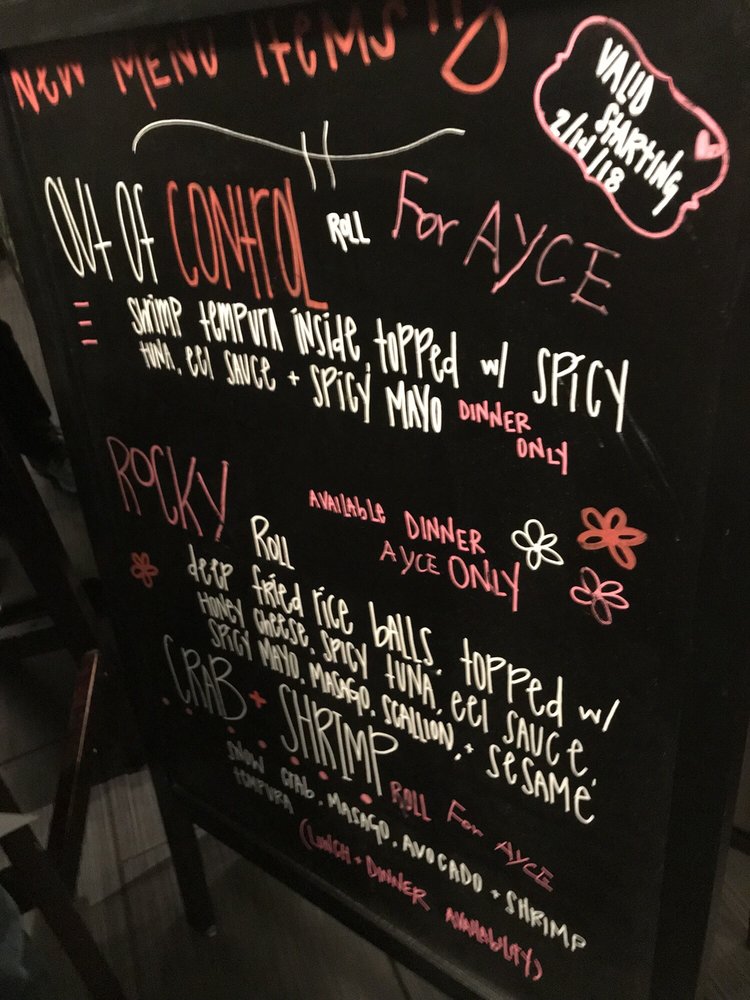 New MENU Items !!
VALID
STARTING
2/14/18
Out Of CONtROL ROLL For AYCE
SHRIMP tempura inside topped w/ SPICY
tuna, eel sauce + SPICY MAYO DINNER
ONLY
ROCKY
AVAILAbLe DINNER
Roll AYCE ONLY
deep fried rice bALLS, topped w/
Honey cheese, spicy tuna, eel sauce,
SPICY MAYO, MASAGO, SCALLION, + SESAME
CRAB + SHRIMP ROLL For AYCE
SNOW CRAb, MASAGO, AVOCADO + SHRIMP
tempura
(LUNCH + DINNER AVAILAbILITY)